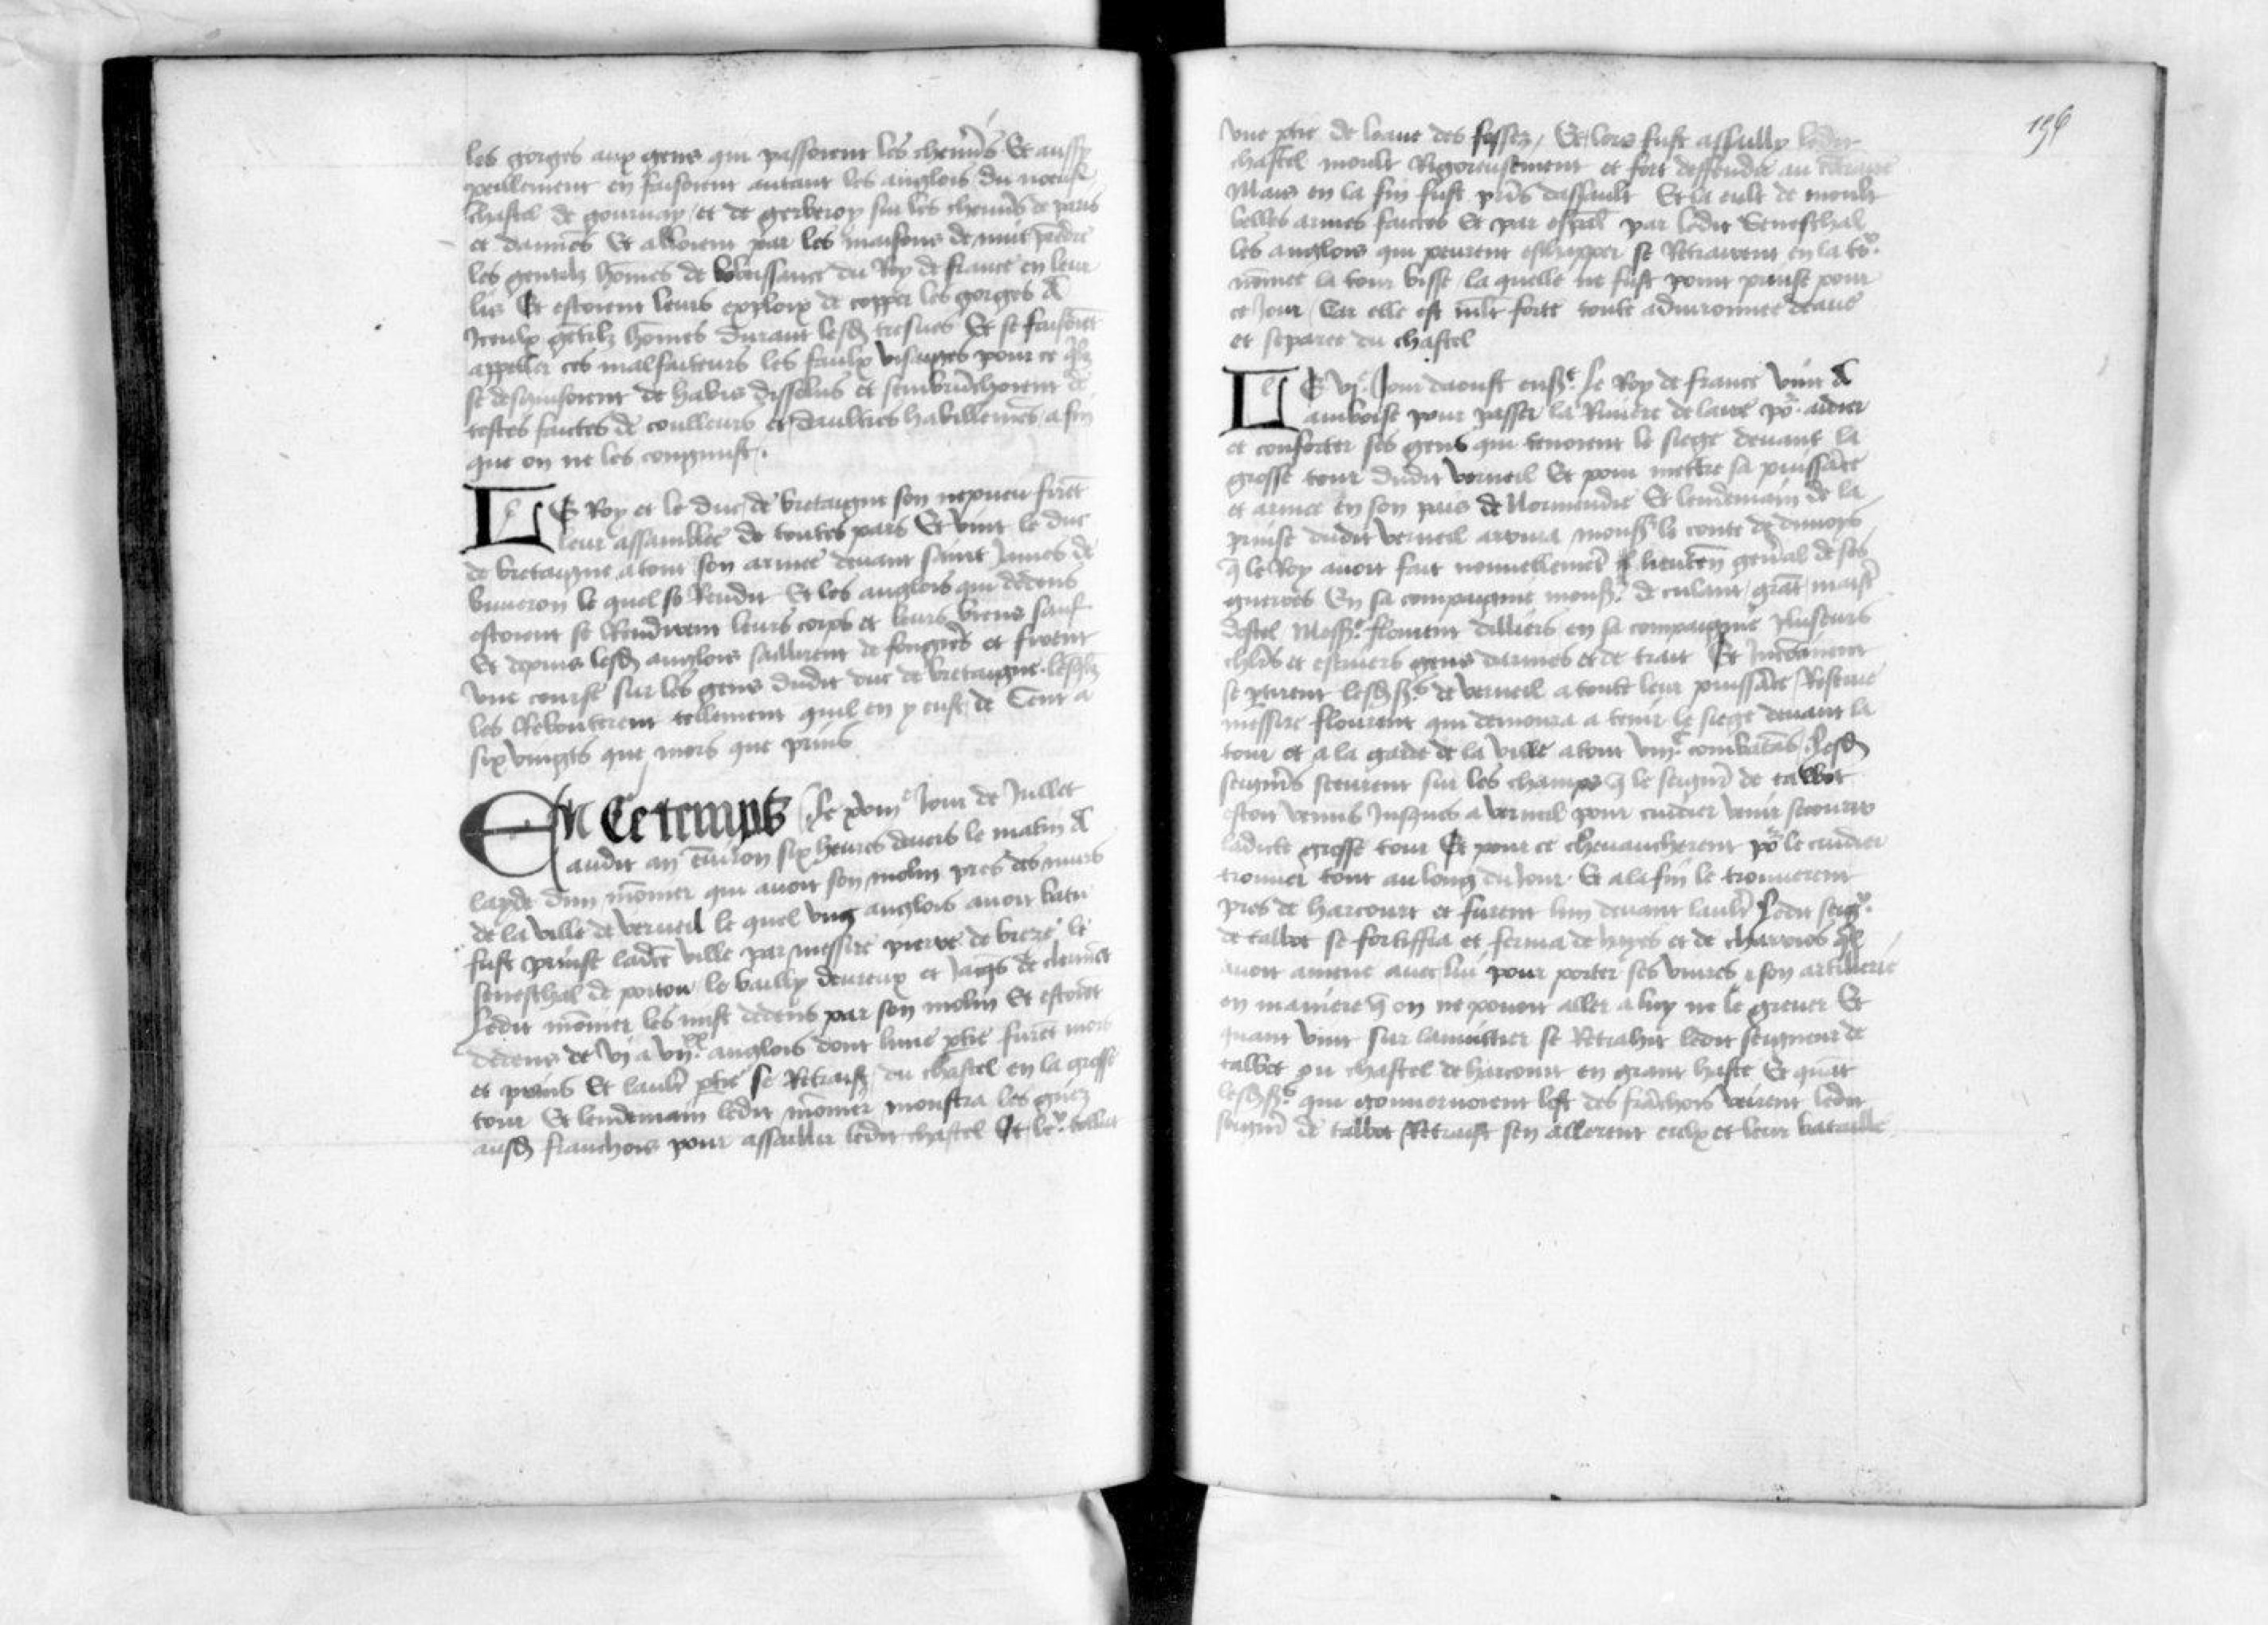 les gorges aux gens qui passoient les chemins Et aussy
pareillement en faisoient autant les anglois du noeuf
chastel de gournay et de gerberoy sur les chemins de paris
et damiens Et alloient par les maisons de nuit prēdre
les gentilz hōmes de lobeissance du Roy de france en leur
lis Et estoient leurs exploix de copper les gorges A
Iceulx gētilz hōmes durant lesd tresues Et se faisoiēt
appeller ces malfaiteurs les faulx visaiges pour ce qlz
se desguisoient de habis dissolus et sembrūchoient de
testes faictes de coulleurs et daultres habillemēs a fin
que on ne les congnust.
LE Roy et le duc de bretaigne son nepueu firēt
leur assamblee de toutes pars Et vint le duc
de bretaigne atout son armee deuant saint James de
buueron le quel se Rendit Et les anglois qui dedens
estoient se Rendirent leurs corps et leurs biens sauf
Et depuis lesd anglois saillirent de fougeres et firent
vne course sur les gens dudit duc de bretaigne lesqlz
les Rebouterent tellement quil en y eust de Cent a
six vingts que mors que prins
EN Ce temps le xviiie Jour de Juillet
audit an enuiron six heures deuers le matin A
layde dun mōnier qui auoit son molin pres des murs
de la ville de verneil le quel vng anglois auoit batu
fust prinse ladcte ville par messire pierre de breze le
seneschal de poitou le bailly deureux et Jaqs de clermōt
Ledit mōnier les mist dedens par son molin Et estoiēt
dedens de vi a viixx anglois dont lune ptie furēt mors
et prins Et laultr ptie se Retraist du chastel en la grosse
tour Et lendemain ledit mōnier monstra les guez
ausd franchois pour assaillir ledit chastel Et le tollit
vne ptie de leaue des fossez, Et lors fust assailly ledit
chastel moult Rigoreusement et fort deffendu au cōtraire
Mais en la fin fust prīs dassault Et la eult de moult
belles armes faictes Et par espāl par ledit Seneschal
les anglois qui peurent eschapper se Retrairent en la to.
nōmee la tour grisse la quelle ne fust point prinse pour
ce Jour Car elle est mlt forte toute aduironnee deaue
et separee du chastel
LE vie Jour daoust ensst le Roy de france vint A
amboise pour passer la Riuiere de laire por aidier
et conforter ses gens qui tenoient le siege deuant la
grosse tour dudit verneil Et pour mettre sa puissāce
et armee en son pais de Normendie Et lendemain de la
prinse dudit verneil arriua monsr le conte de dunoys
q le Roy auoit fait nouuellemēt lieutēn genāl de ses
guerres En sa compaignie monsr de culant grāt maistr
dostel Messe flourent dilliers en sa compaignie plusieurs
chlrs et escuiers gens darmes et de trait Et Incōtinent
se ptirent lesdss de verneil a toute leur puissāce Reserue
messire flourent qui demoura a tenir le siege deuant la
tour et a la garde de la ville atout viiic combatās Lesd
seigrs sceurent sur les champs q le seigr de talbot
estoit venus Jusques a verneil pour cuidier venir secourir
ladicte grosse tour Et pour ce cheuaucherent por le cuidier
trouuer tout au long du Jour Et ala fin le trouuerent
pres de harcourt et furent lun deuant laultr Ledit seigr
de talbot se fortiffia et ferma de hayes et de charrois ql
auoit amene auec lui pour porter ses viures & son artillerie
en maniere q on ne pouoit aller a luy ne le greuer Et
quant vint sur lanuittier se Retrahit ledit seigneur de
talbot ou chastel de harcourt en grant haste Et quāt
lesdss qui gouuernoient lost des frāchois veirent ledit
seigr de talbot Retraist sen allerent eulx et leur bataille
196